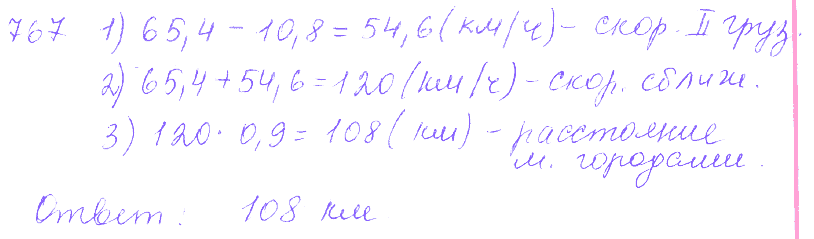 767 1) 65,4 - 10,8 = 54,6 (км/ч) - скор. II груз.
2) 65,4 + 54,6 = 120 (км/ч) - скор. сближ.
3) 120 · 0,9 = 108 (км) - расстояние
м. городами.
Ответ: 108 км